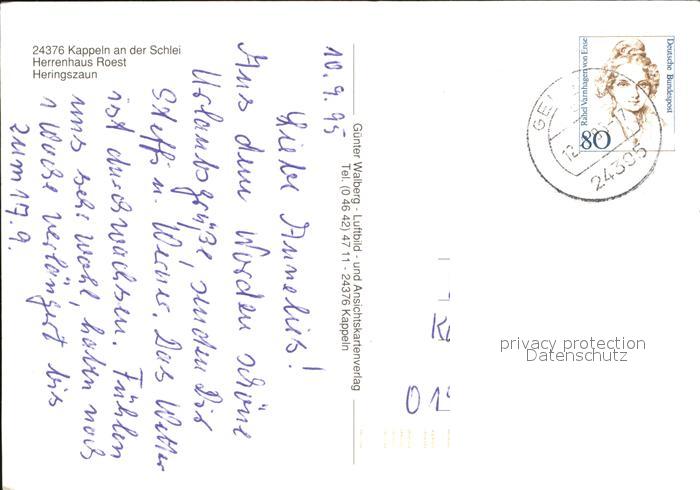 24376 Kappeln an der Schlei
Herrenhaus Roest
Heringszaun
10.9.95
Liebe Annelies!
Aus dem Norden schöne
Urlaubsgrüße, senden Dir
Steffi u. Werner. Das Wetter
ist durchwachsen. Fühlen
uns sehr wohl, haben noch
1 Woche verlängert bis
zum 17.9.
Günter Walberg - Luftbild - und Ansichtskartenverlag
Tel. (0 46 42) 47 11 - 24376 Kappeln
Deutsche Bundespost
Rahel Varnhagen von Ense
80
GEL
24395
privacy protection
Datenschutz
01